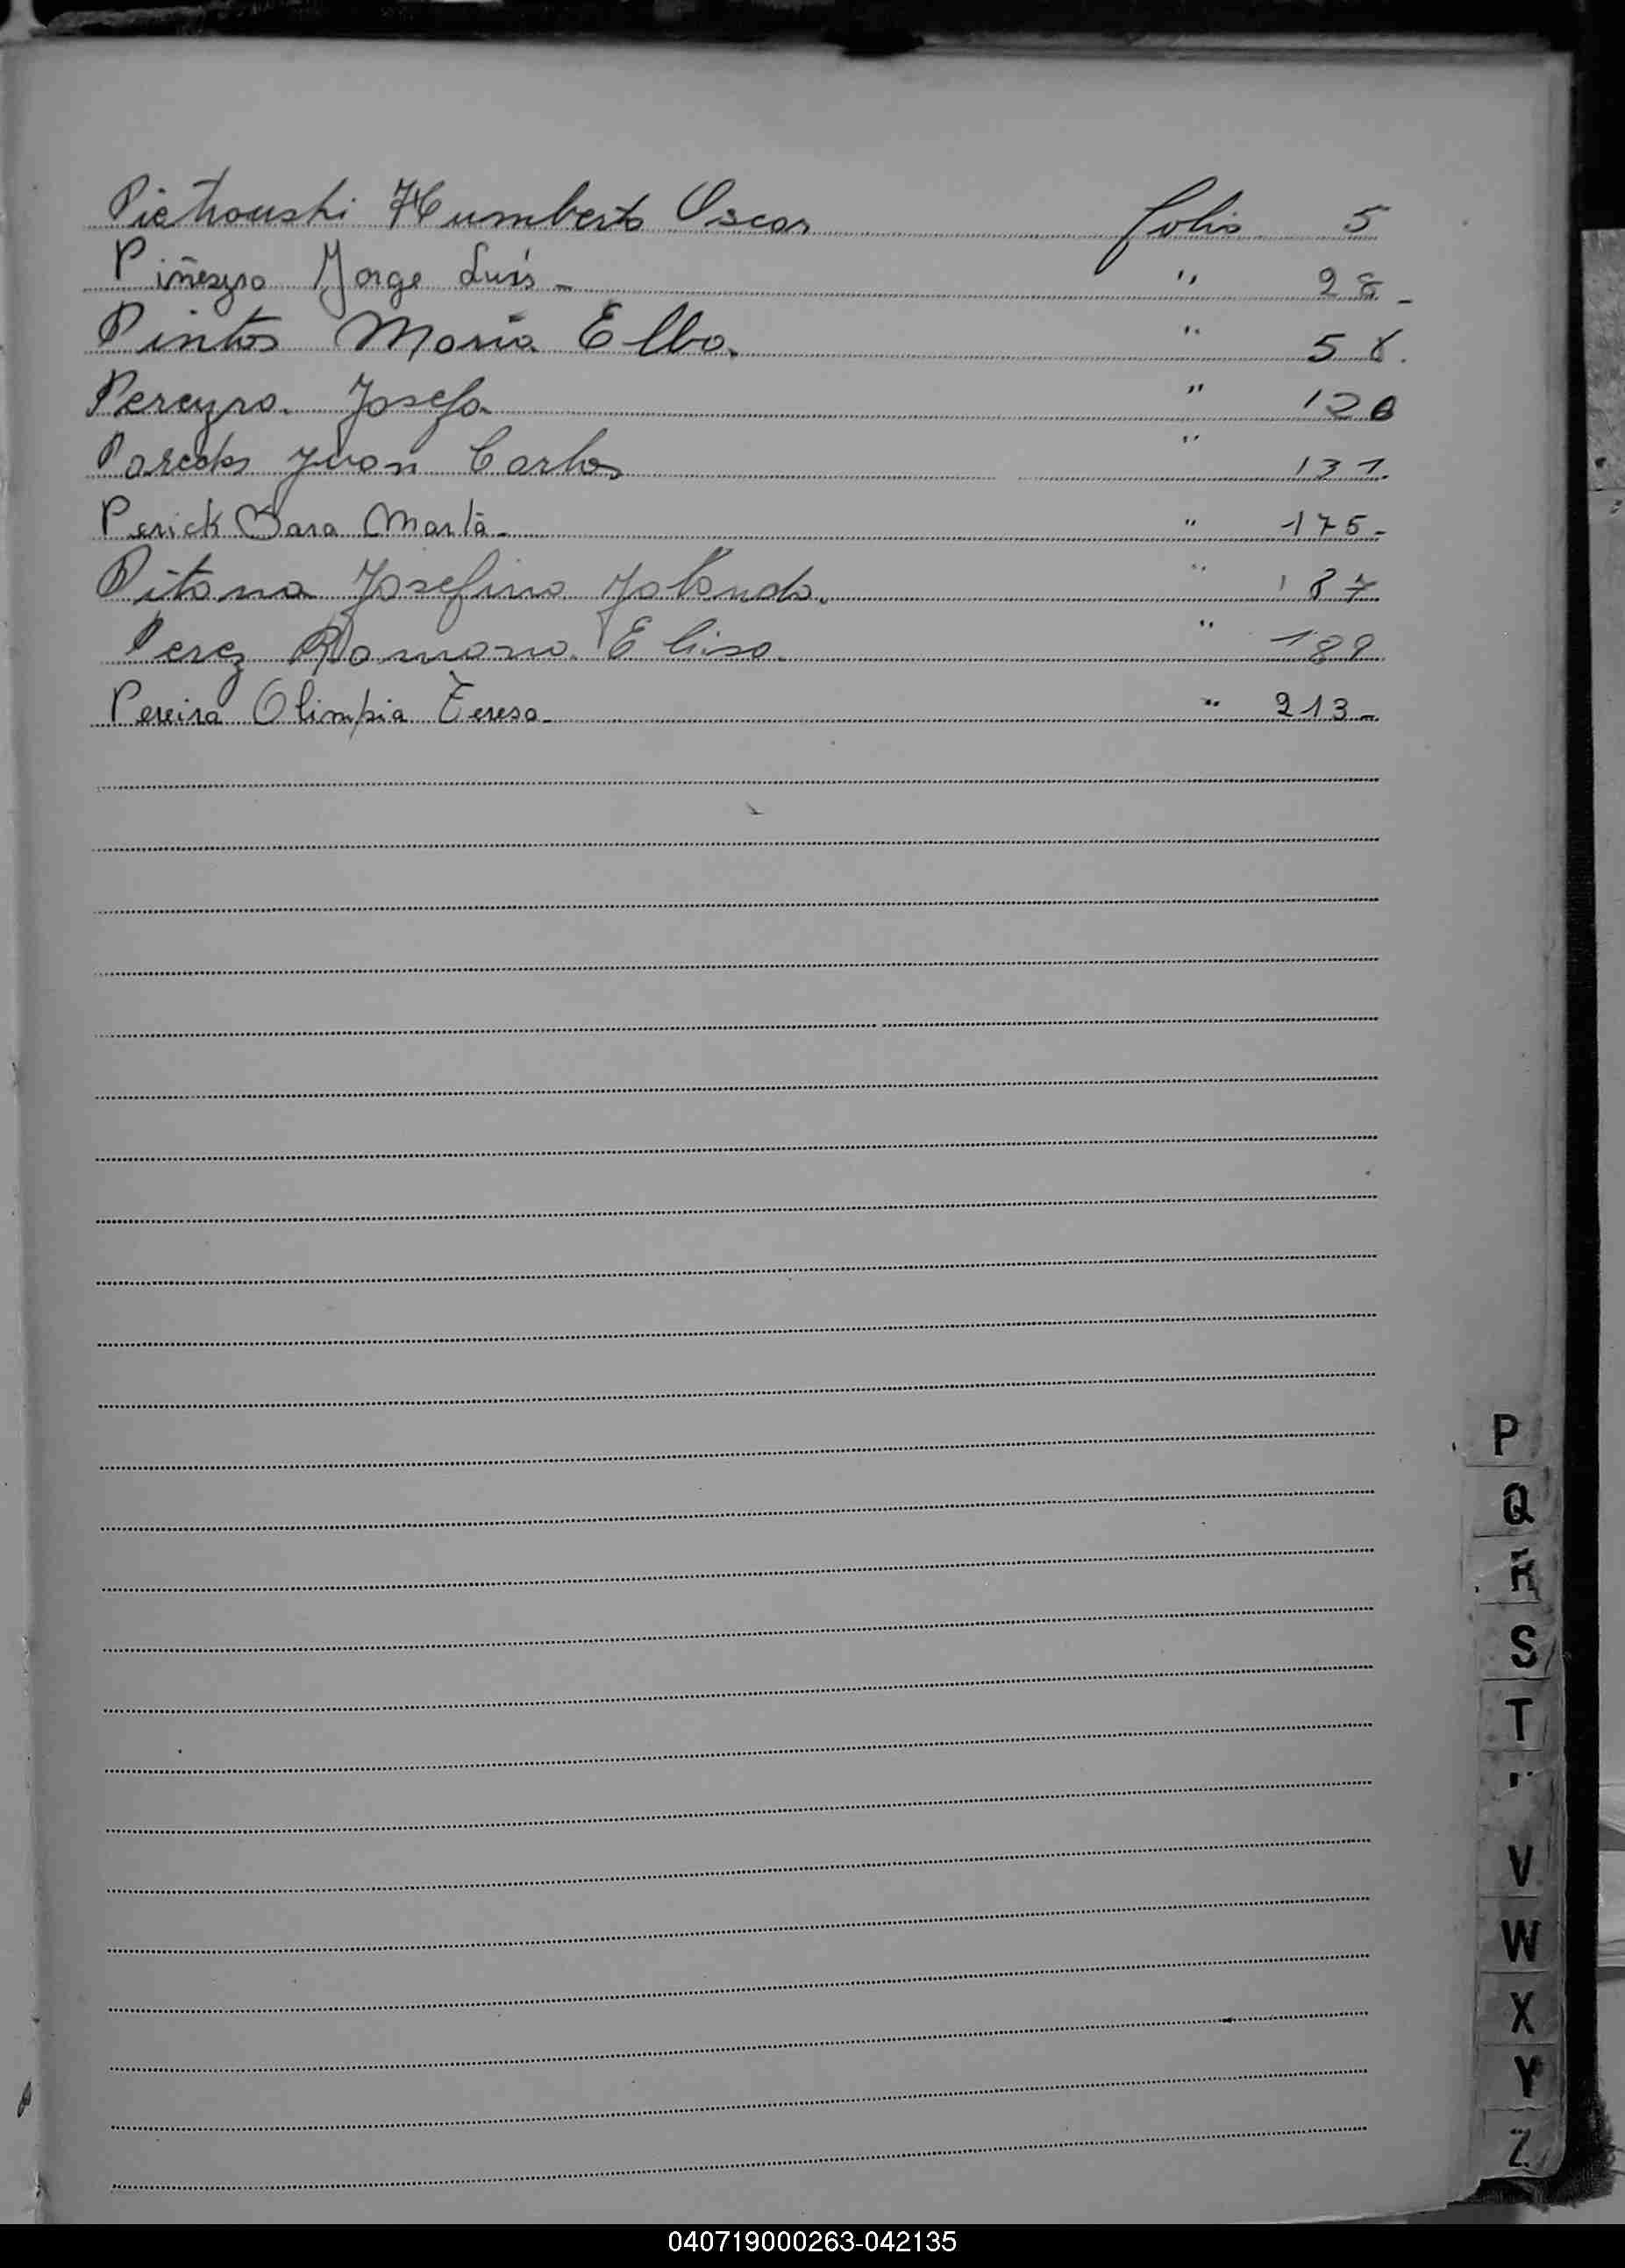 Pietrouski Humberto Oscar folio 5
Piñeyro Jorge Luis - " 28 -
Pintos Maria Elba. " 58.
Pereyra Josefa " 120
Paredes Juan Carlos " 131.
Perick Sara Marta - " 175 -
Pitana Josefina Jolanda. " 187
Perez Romana Elisa " 189
Pereira Olimpia Teresa - " 213 -
P
Q
R
S
T
V
W
X
Y
Z
040719000263-042135